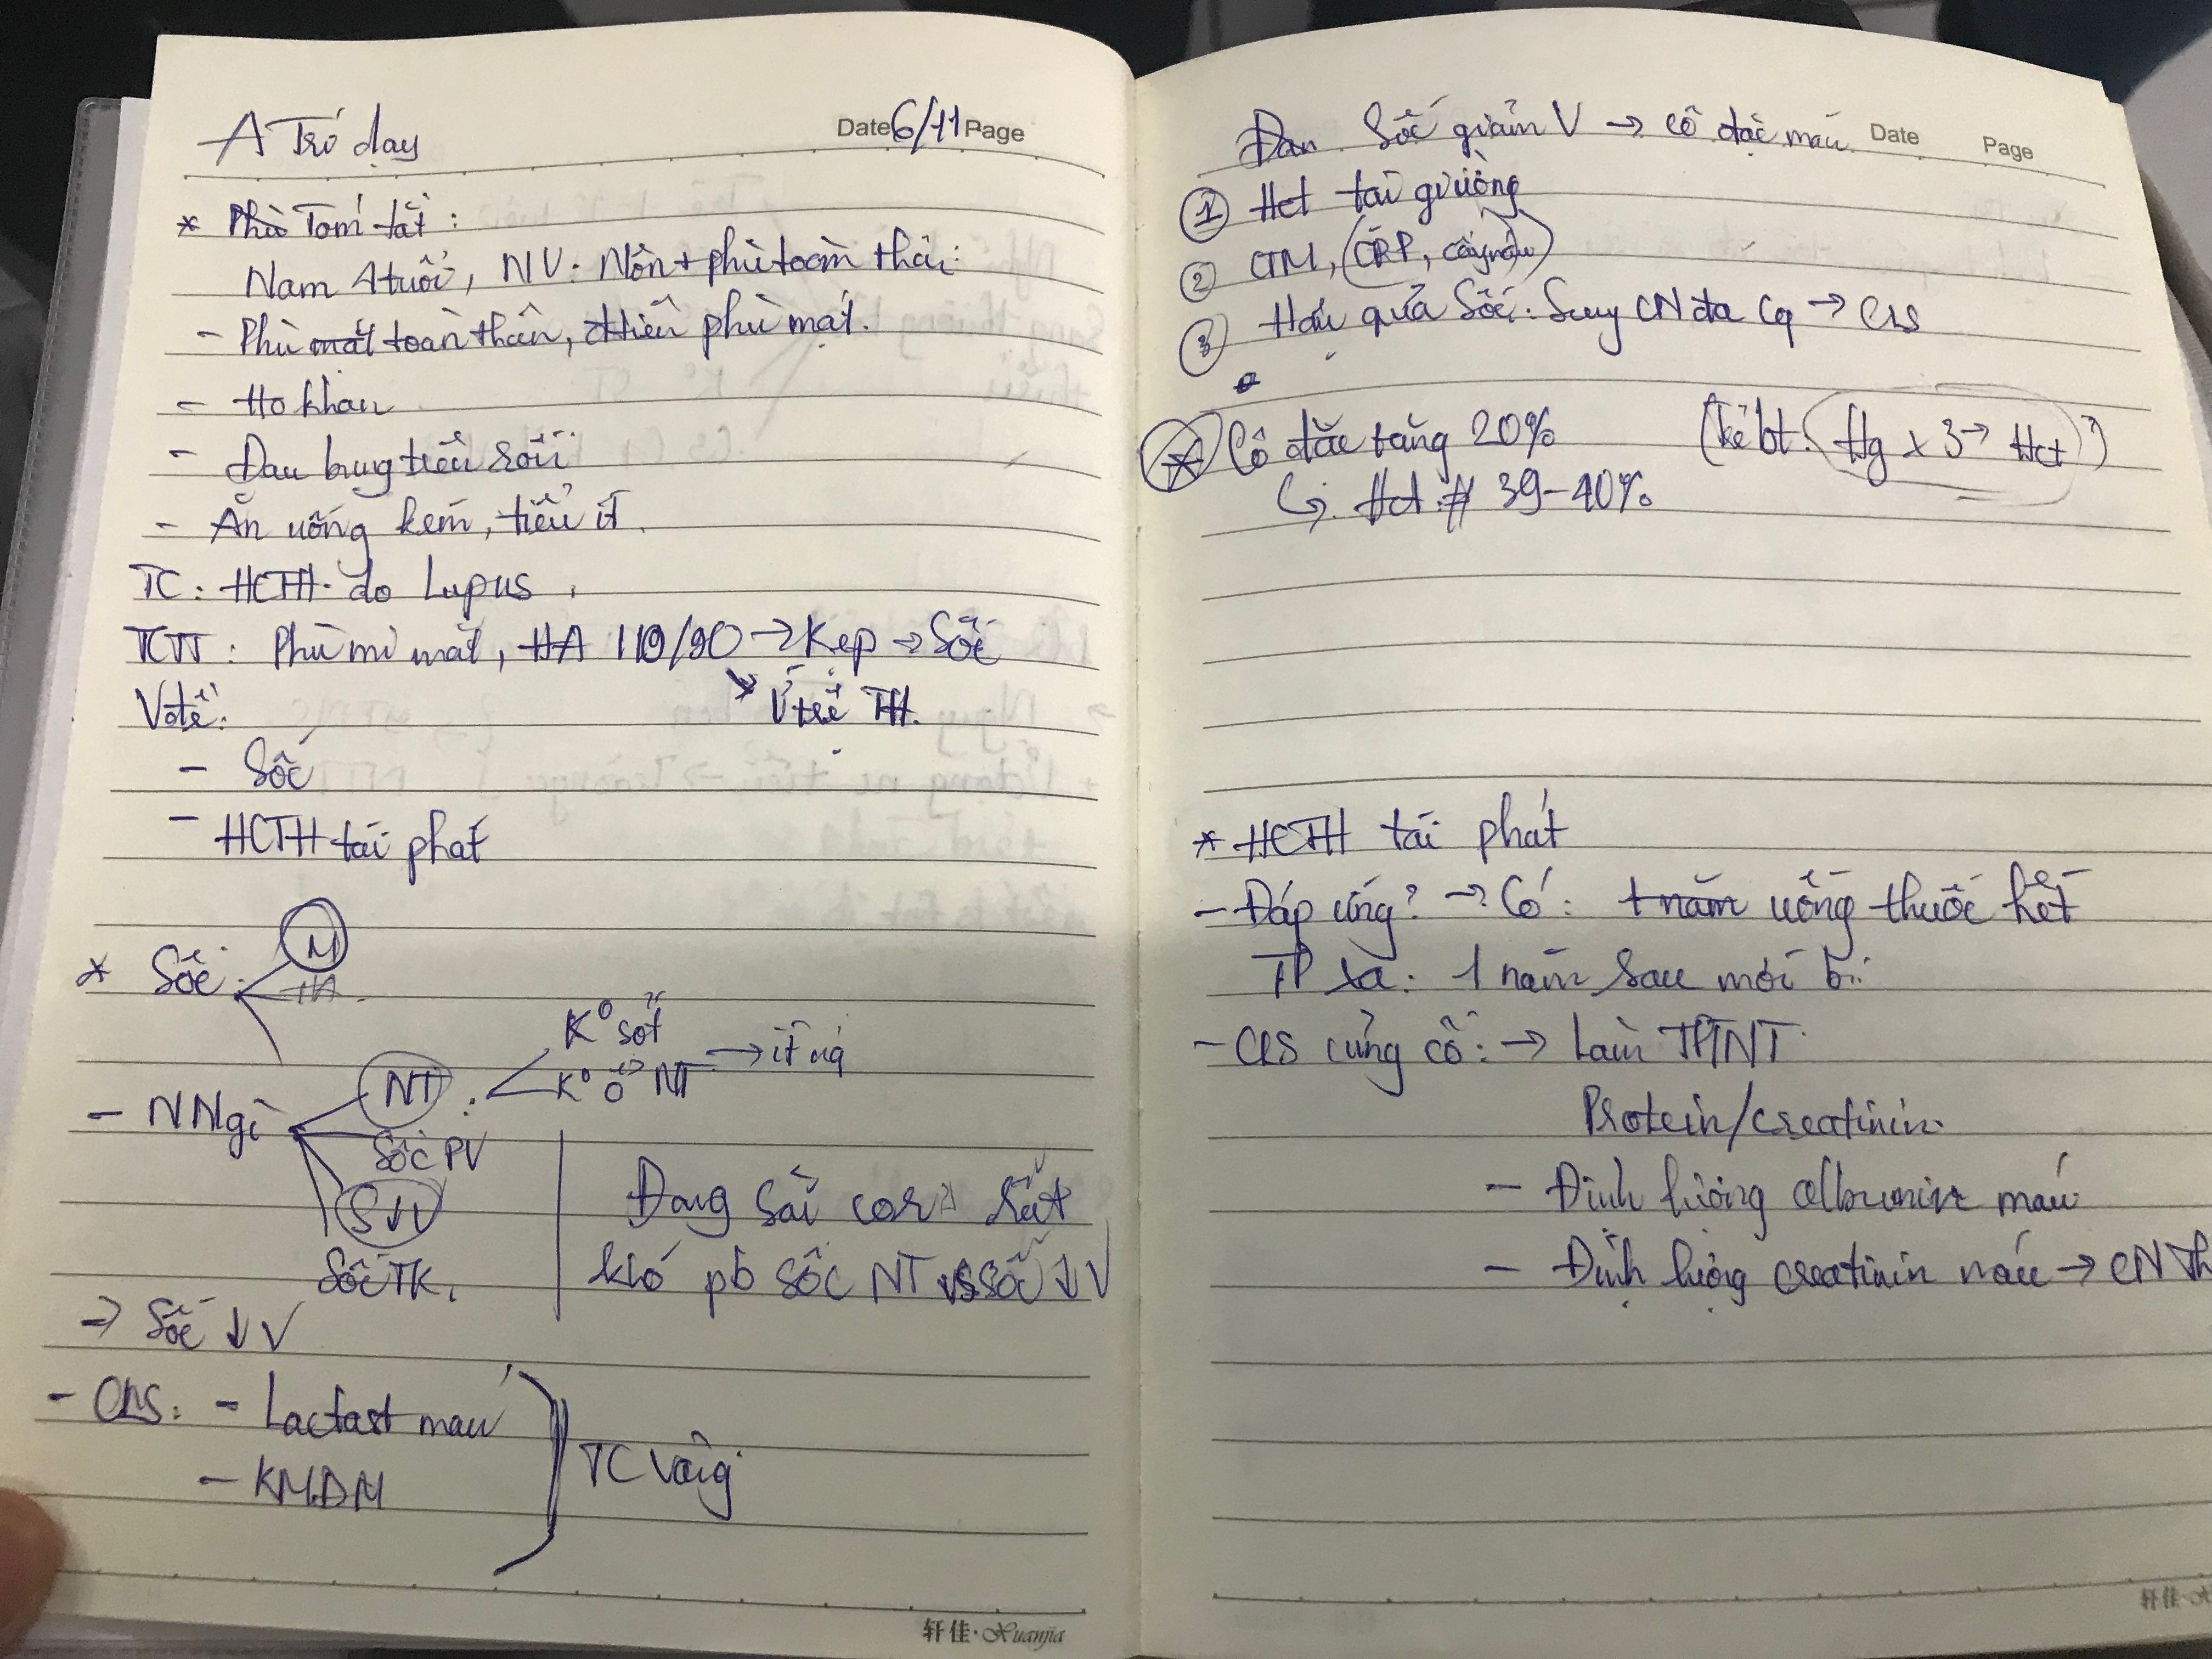 A Trí dạy
Date 6/11 Page
* Phù Tóm tắt :
Nam 4 tuổi, NV: Nôn + phù toàn thân
- Phù mặt toàn thân, nhiều phù mặt.
- Ho khan
- Đau bụng tiêu
- Ăn uống kém, tiểu ít.
TC : HCTH do Lupus
TCTT : Phù mi mắt, HA 110/90 → Kẹp → Sốc
TH.
V đề:
- Sốc
- HCTH tái phát
* Sốc: M
HA
- NN gì NT : K° sốt
K° ổ NT → ít ng
Sốc PV
S↓V
Sốc TK.
Đang sài cor rất
khó pb sốc NT vs sốc ↓V
→ Sốc ↓V
- CLS: - Lactast máu
- KMĐM
TC
Sốc giảm V → cô đặc máu
Date Page
① Hct tại giường
② CTM, (CRP, cấy máu)
③ Hậu quả Sốc: Suy CN đa Cq → CLS
* Cô đặc tăng 20% (Hg x 3 → Hct)
↳ Hct # 39-40%
* HCTH tái phát
- Đáp ứng? → Có: 1 năm uống thuốc hết
TP xa: 1 năm sau mới bị
- CLS củng cố: → Làm TPTNT
Protein/creatinin
- Định lượng albumin máu
- Định lượng creatinin máu → CN Th
轩佳·Xuanjia